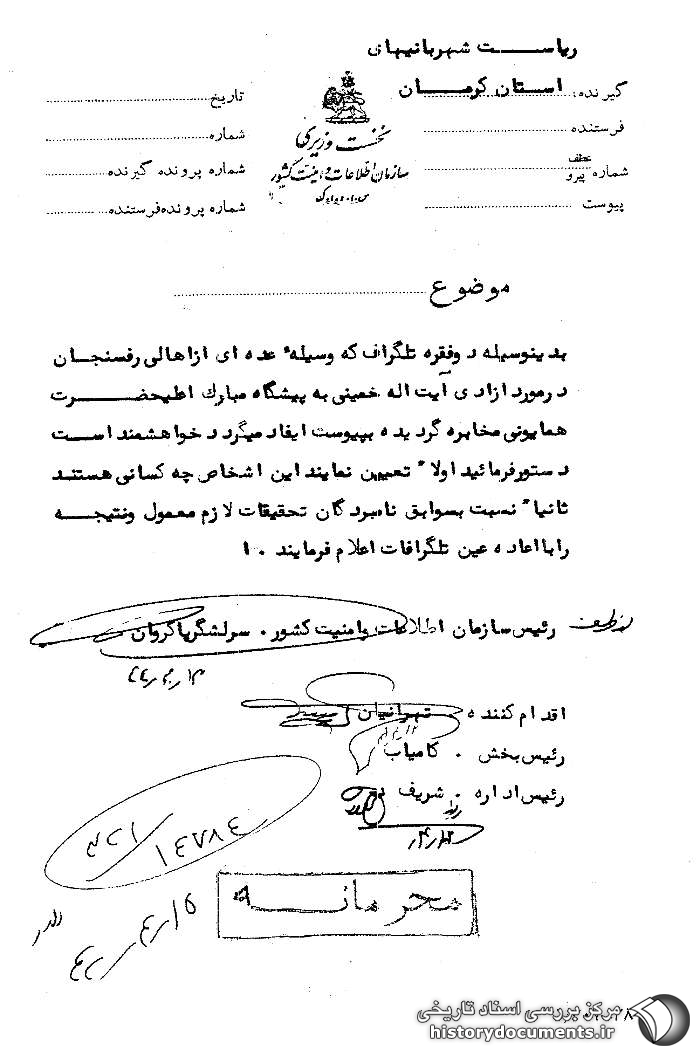 ریاست شهربانیهای
گیرنده: استان کرمان
فرستنده
شماره عطف پیرو
پیوست
نخست وزیری
سازمان اطلاعات و امنیت کشور
س.ا.و.ا.ک
تاریخ
شماره
شماره پرونده گیرنده
شماره پرونده فرستنده
موضوع
بدینوسیله دوفقره تلگراف که وسیلهٔ عده ای ازاهالی رفسنجان
درمورد ازادی آیت اله خمینی به پیشگاه مبارک اعلیحضرت
همایونی مخابره گردیده بپیوست ایفاد میگردد خواهشمند است
دستورفرمائید اولا" تعیین نمایند این اشخاص چه کسانی هستند
ثانیا" نسبت بسوابق نامبردگان تحقیقات لازم معمول ونتیجه
را بااعاده عین تلگرافات اعلام فرمایند . ا
رئیس سازمان اطلاعات وامنیت کشور . سرلشگرپاکروان
اقدام کننده تهرانیان
رئیس بخش . کامیاب
رئیس اداره . شریف
۳۲۱/۱۴۷۸۴
۴۲/۴/۱۵
محرمانه
مرکز بررسی اسناد تاریخی
historydocuments.ir